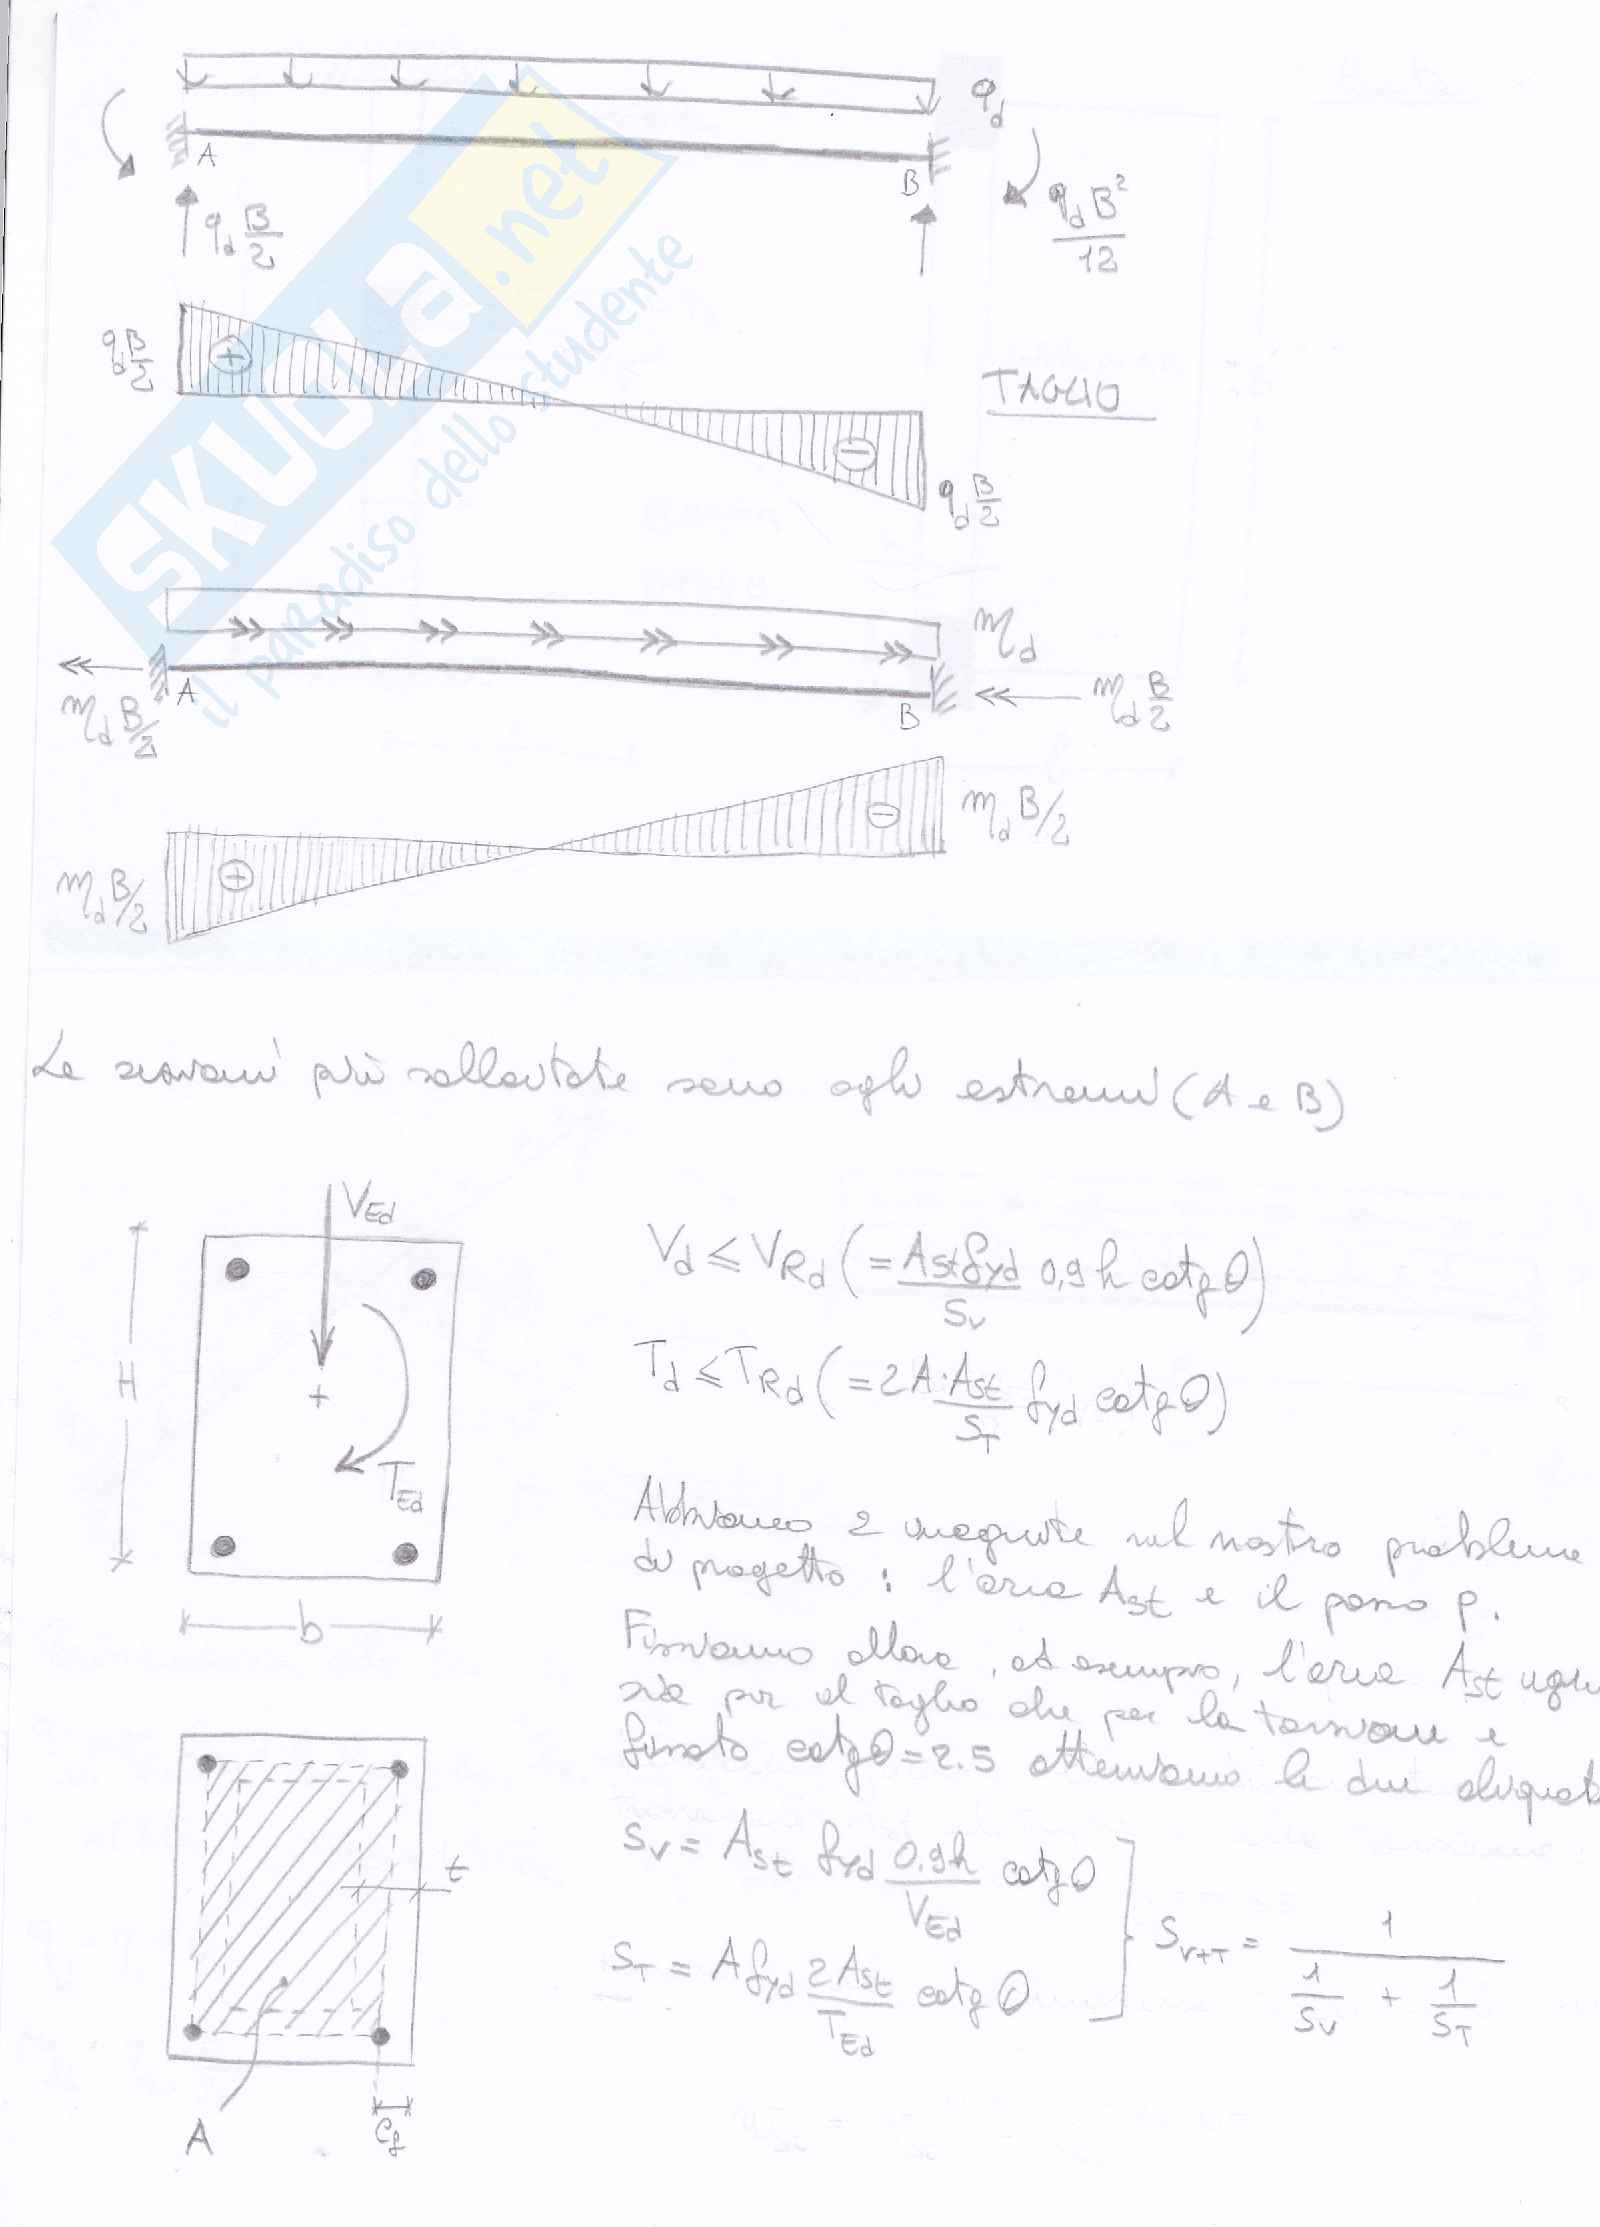 q_d
A
B
q_d B/2
q_d B²/12
SKUOLA.net
il paradiso dello studente
q_d B/2
+
TAGLIO
−
q_d B/2
m_d
A
B
m_d B/2
m_d B/2
−
m_d B/2
+
m_d B/2
Le sezioni più sollecitate sono agli estremi (A e B)
V_Ed
H
+
T_Ed
b
V_d ≤ V_Rd (= A_st f_yd / S_v 0,9 h cotg θ)
T_d ≤ T_Rd (= 2A·A_st / S_T f_yd cotg θ)
Abbiamo 2 incognite nel nostro problema
di progetto : l'area A_st e il passo p.
Fissiamo allora, ad esempio, l'area A_st
sia per il taglio che per la torsione e
fissato cotg θ = 2.5 otteniamo le due
t
A
c_f
S_v = A_st f_yd 0.9h / V_Ed cotg θ
S_T = A f_yd 2A_st / T_Ed cotg θ
S_v+T = 1 / (1/S_v + 1/S_T)